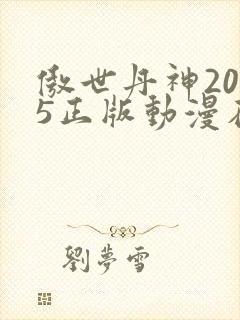 傲世丹神20
5正版動漫在
劉夢雪